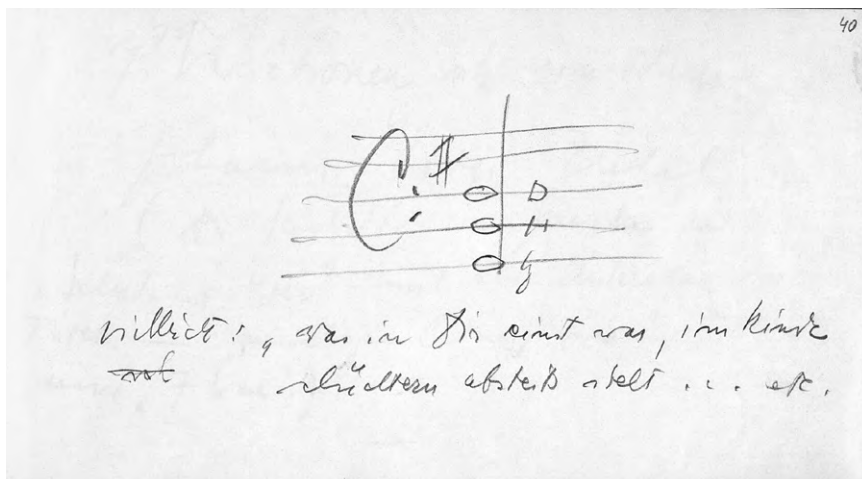 40
D
H
G
vielleicht: „was in Dir einst war, im Kinde
schüchtern abseits steht ... etc.